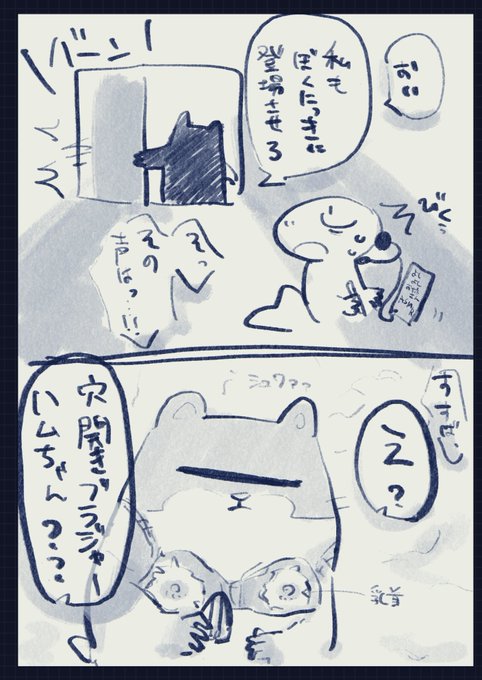 おい
私も
ぼくにっきに
登場させろ
バーン
びくっ
えっ
その
声はっ…!!
すすばし
え?
穴開きブラジャー
ハムちゃん??
乳首